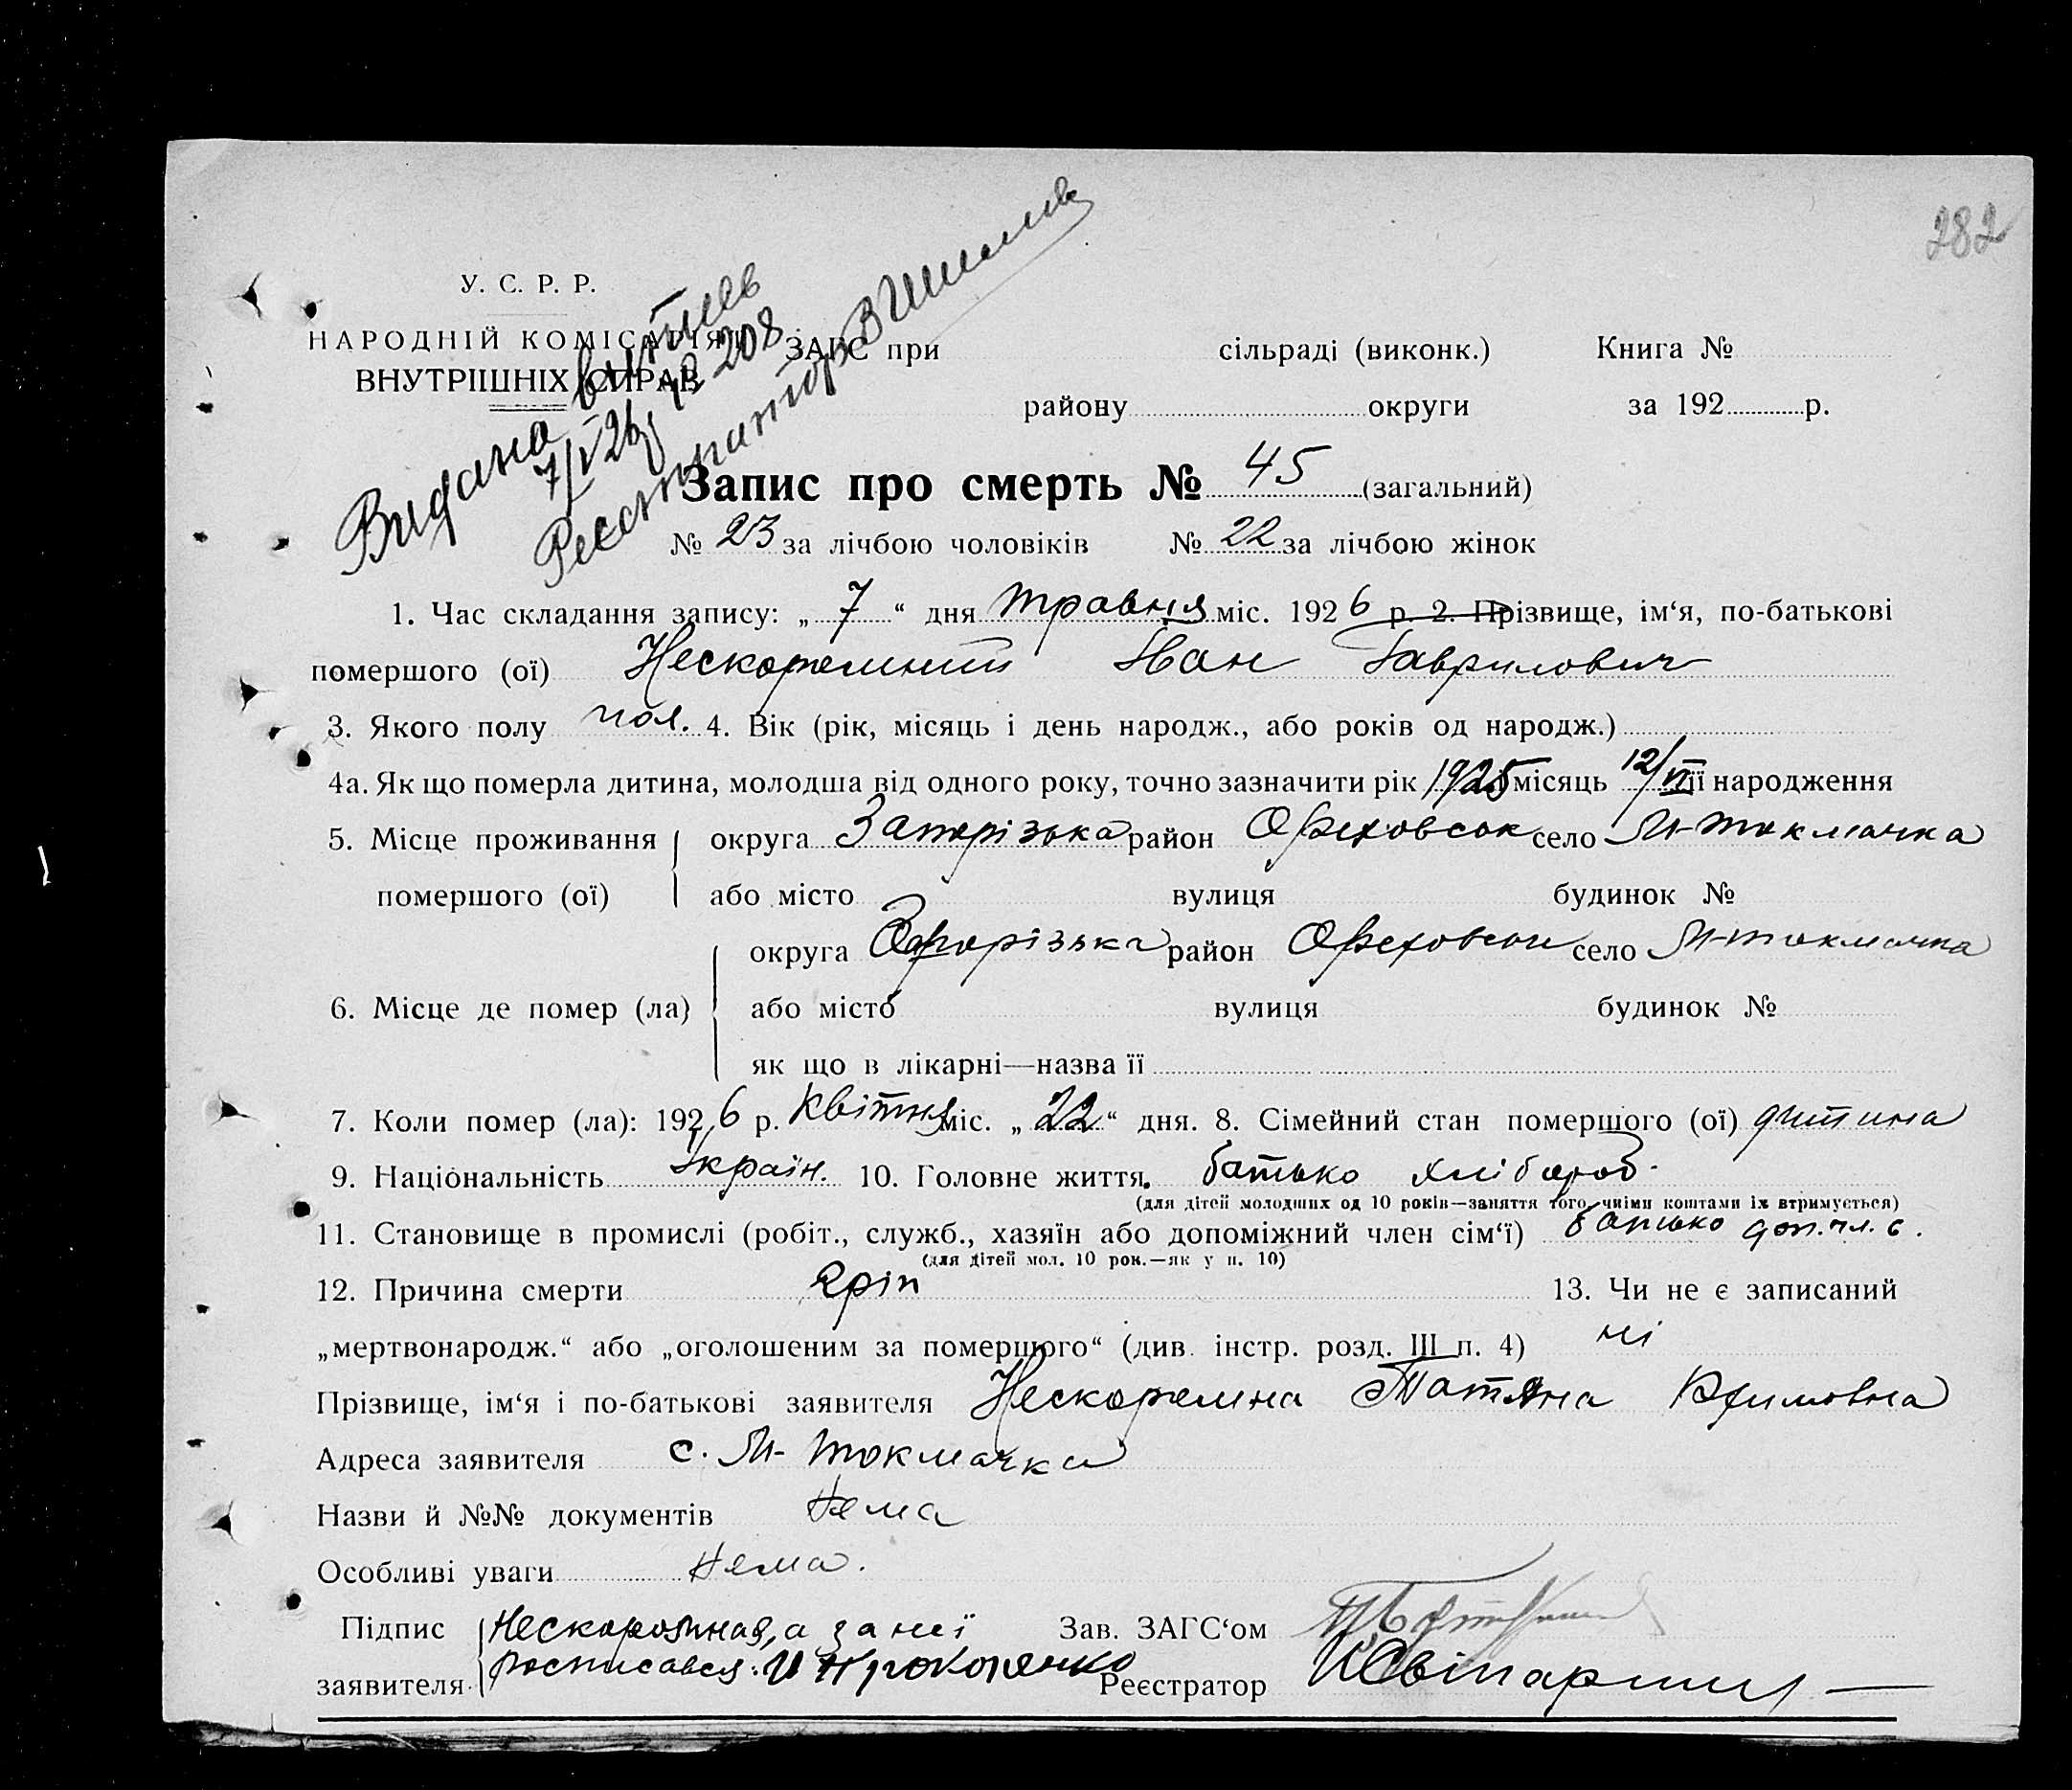 282
У. С. Р. Р.
НАРОДНІЙ КОМІСАРІЯТ
ВНУТРІШНІХ СПРАВ
Видана витяг
7/V 26 № 208
Реєстратор
ЗАГС при сільраді (виконк.) Книга №
району округи за 192 р.
Запис про смерть № 45 (загальний)
№ 23 за лічбою чоловіків № 22 за лічбою жінок
1. Час складання запису: „ 7 “ дня травня міс. 1926 р. 2. Прізвище, ім‘я, по-батькові
помершого (ої) Іван Гаврилович
3. Якого полу чол. 4. Вік (рік, місяць і день народж., або років од народж.)
4а. Як що померла дитина, молодша від одного року, точно зазначити рік 1925 місяць 12/VI її народження
5. Місце проживання округа Запорізька район Ореховськ село М-токмачка
помершого (ої) або місто вулиця будинок №
округа Запорізька район Ореховськ село М-токмачка
6. Місце де помер (ла) або місто вулиця будинок №
як що в лікарні—назва її
7. Коли помер (ла): 1926 р. Квітня міс. „ 22 “ дня. 8. Сімейний стан помершого (ої) дитина
9. Національність Україн. 10. Головне життя. батько хлібороб.
(для дітей молодших од 10 років—заняття того, чиїми коштами їх втримується)
11. Становище в промислі (робіт., служб., хазяїн або допоміжний член сім‘ї) батько доп. чл. с.
(для дітей мол. 10 рок.—як у п. 10)
12. Причина смерти гріп 13. Чи не є записаний
„мертвонародж.“ або „оголошеним за помершого“ (див. інстр. розд. III п. 4) ні
Прізвище, ім‘я і по-батькові заявителя Татяна
Адреса заявителя с. М-токмачка
Назви й №№ документів Нема
Особливі уваги Нема.
Підпис а за неї Зав. ЗАГС‘ом
заявителя росписався: И Прокопенко Реєстратор